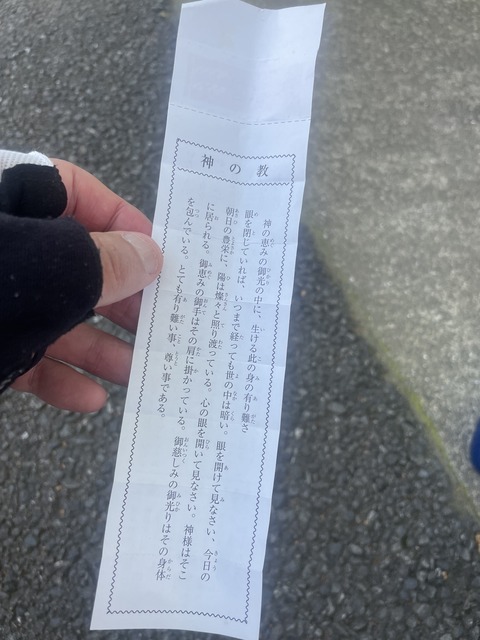 神の教
神の恵みの御光の中に、生ける此の身の有り難さ
眼を閉じていれば、いつまで経っても世の中は暗い。眼を開けて見なさい、今日の
朝日の豊栄に、陽は燦々と照り渡っている。心の眼を開いて見なさい。神様はそこ
に居られる。御恵みの御手はその肩に掛かっている。御慈しみの御光りはその身体
を包んでいる。とても有り難い事、尊い事である。